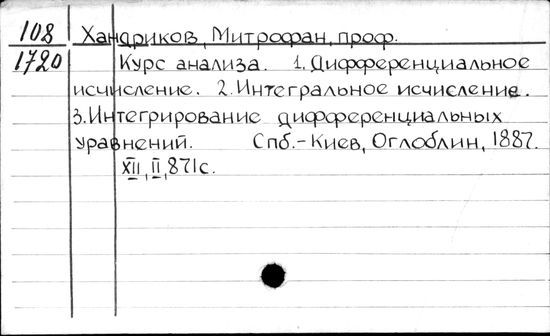 108 Хандриков, Митрофан, проф.
1720 Курс анализа. 1. Дифференциальное
исчисление. 2. Интегральное исчисление.
3. Интегрирование дифференциальных
уравнений. Спб.-Киев, Оглоблин, 1887.
XII, II, 871с.